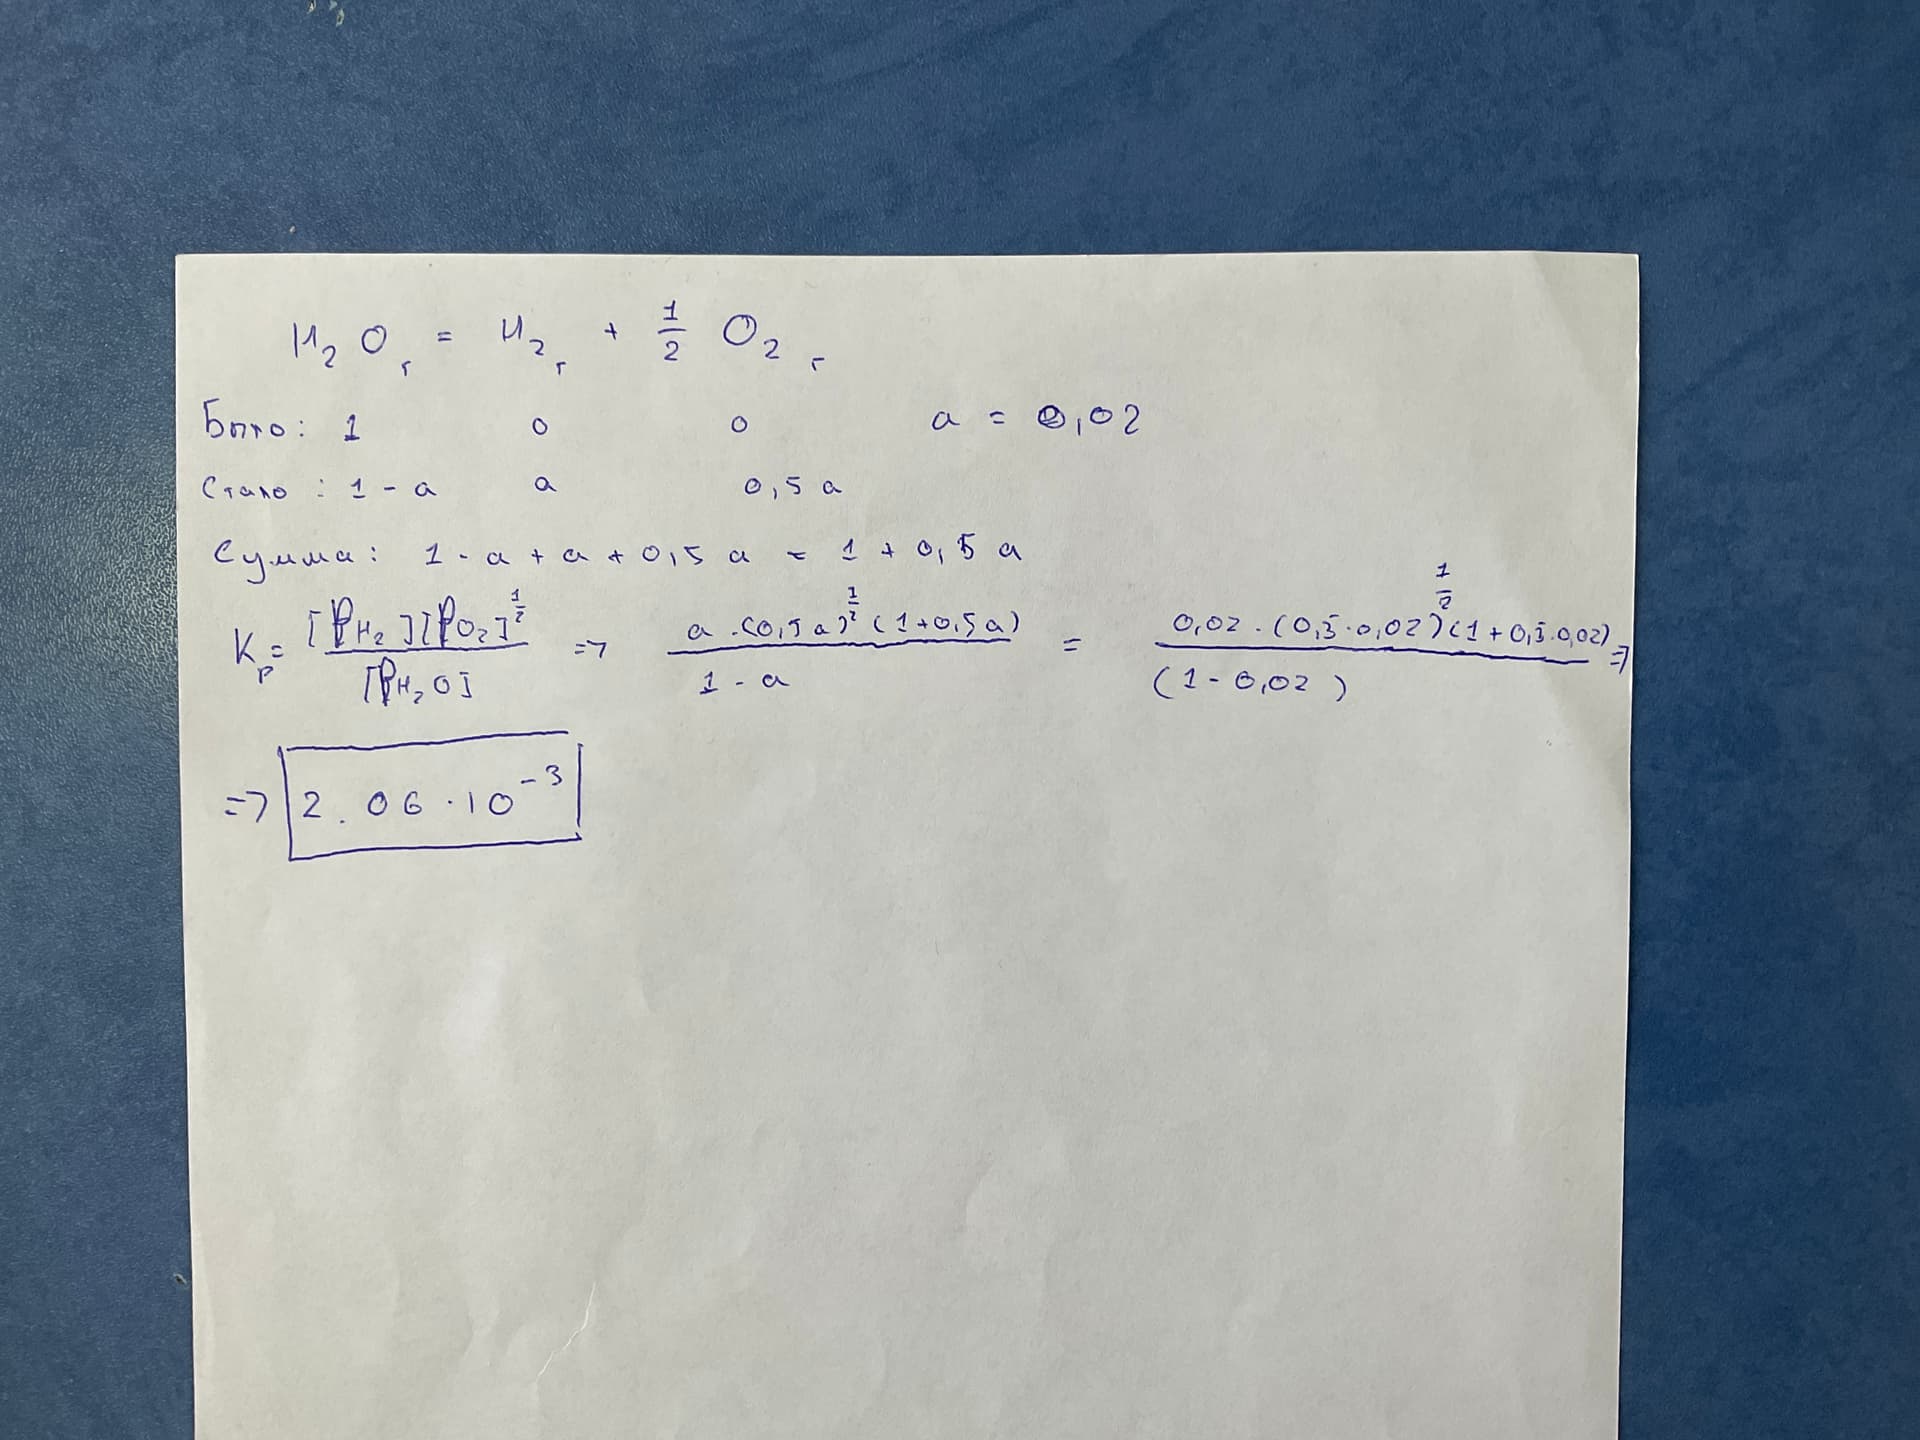 H₂O г = H₂ г + 1/2 O₂ г
Было: 1 0 0 a = 0,02
Стало: 1 - a a 0,5 a
Сумма: 1 - a + a + 0,5 a = 1 + 0,5 a
Kp = [pH₂][pO₂]^1/2 / [pH₂O] => a · (0,5 a)^1/2 (1+0,5a) / 1 - a = 0,02 · (0,5 · 0,02)^1/2 (1 + 0,5 · 0,02) / (1 - 0,02) =>
=> 2.06 · 10⁻³